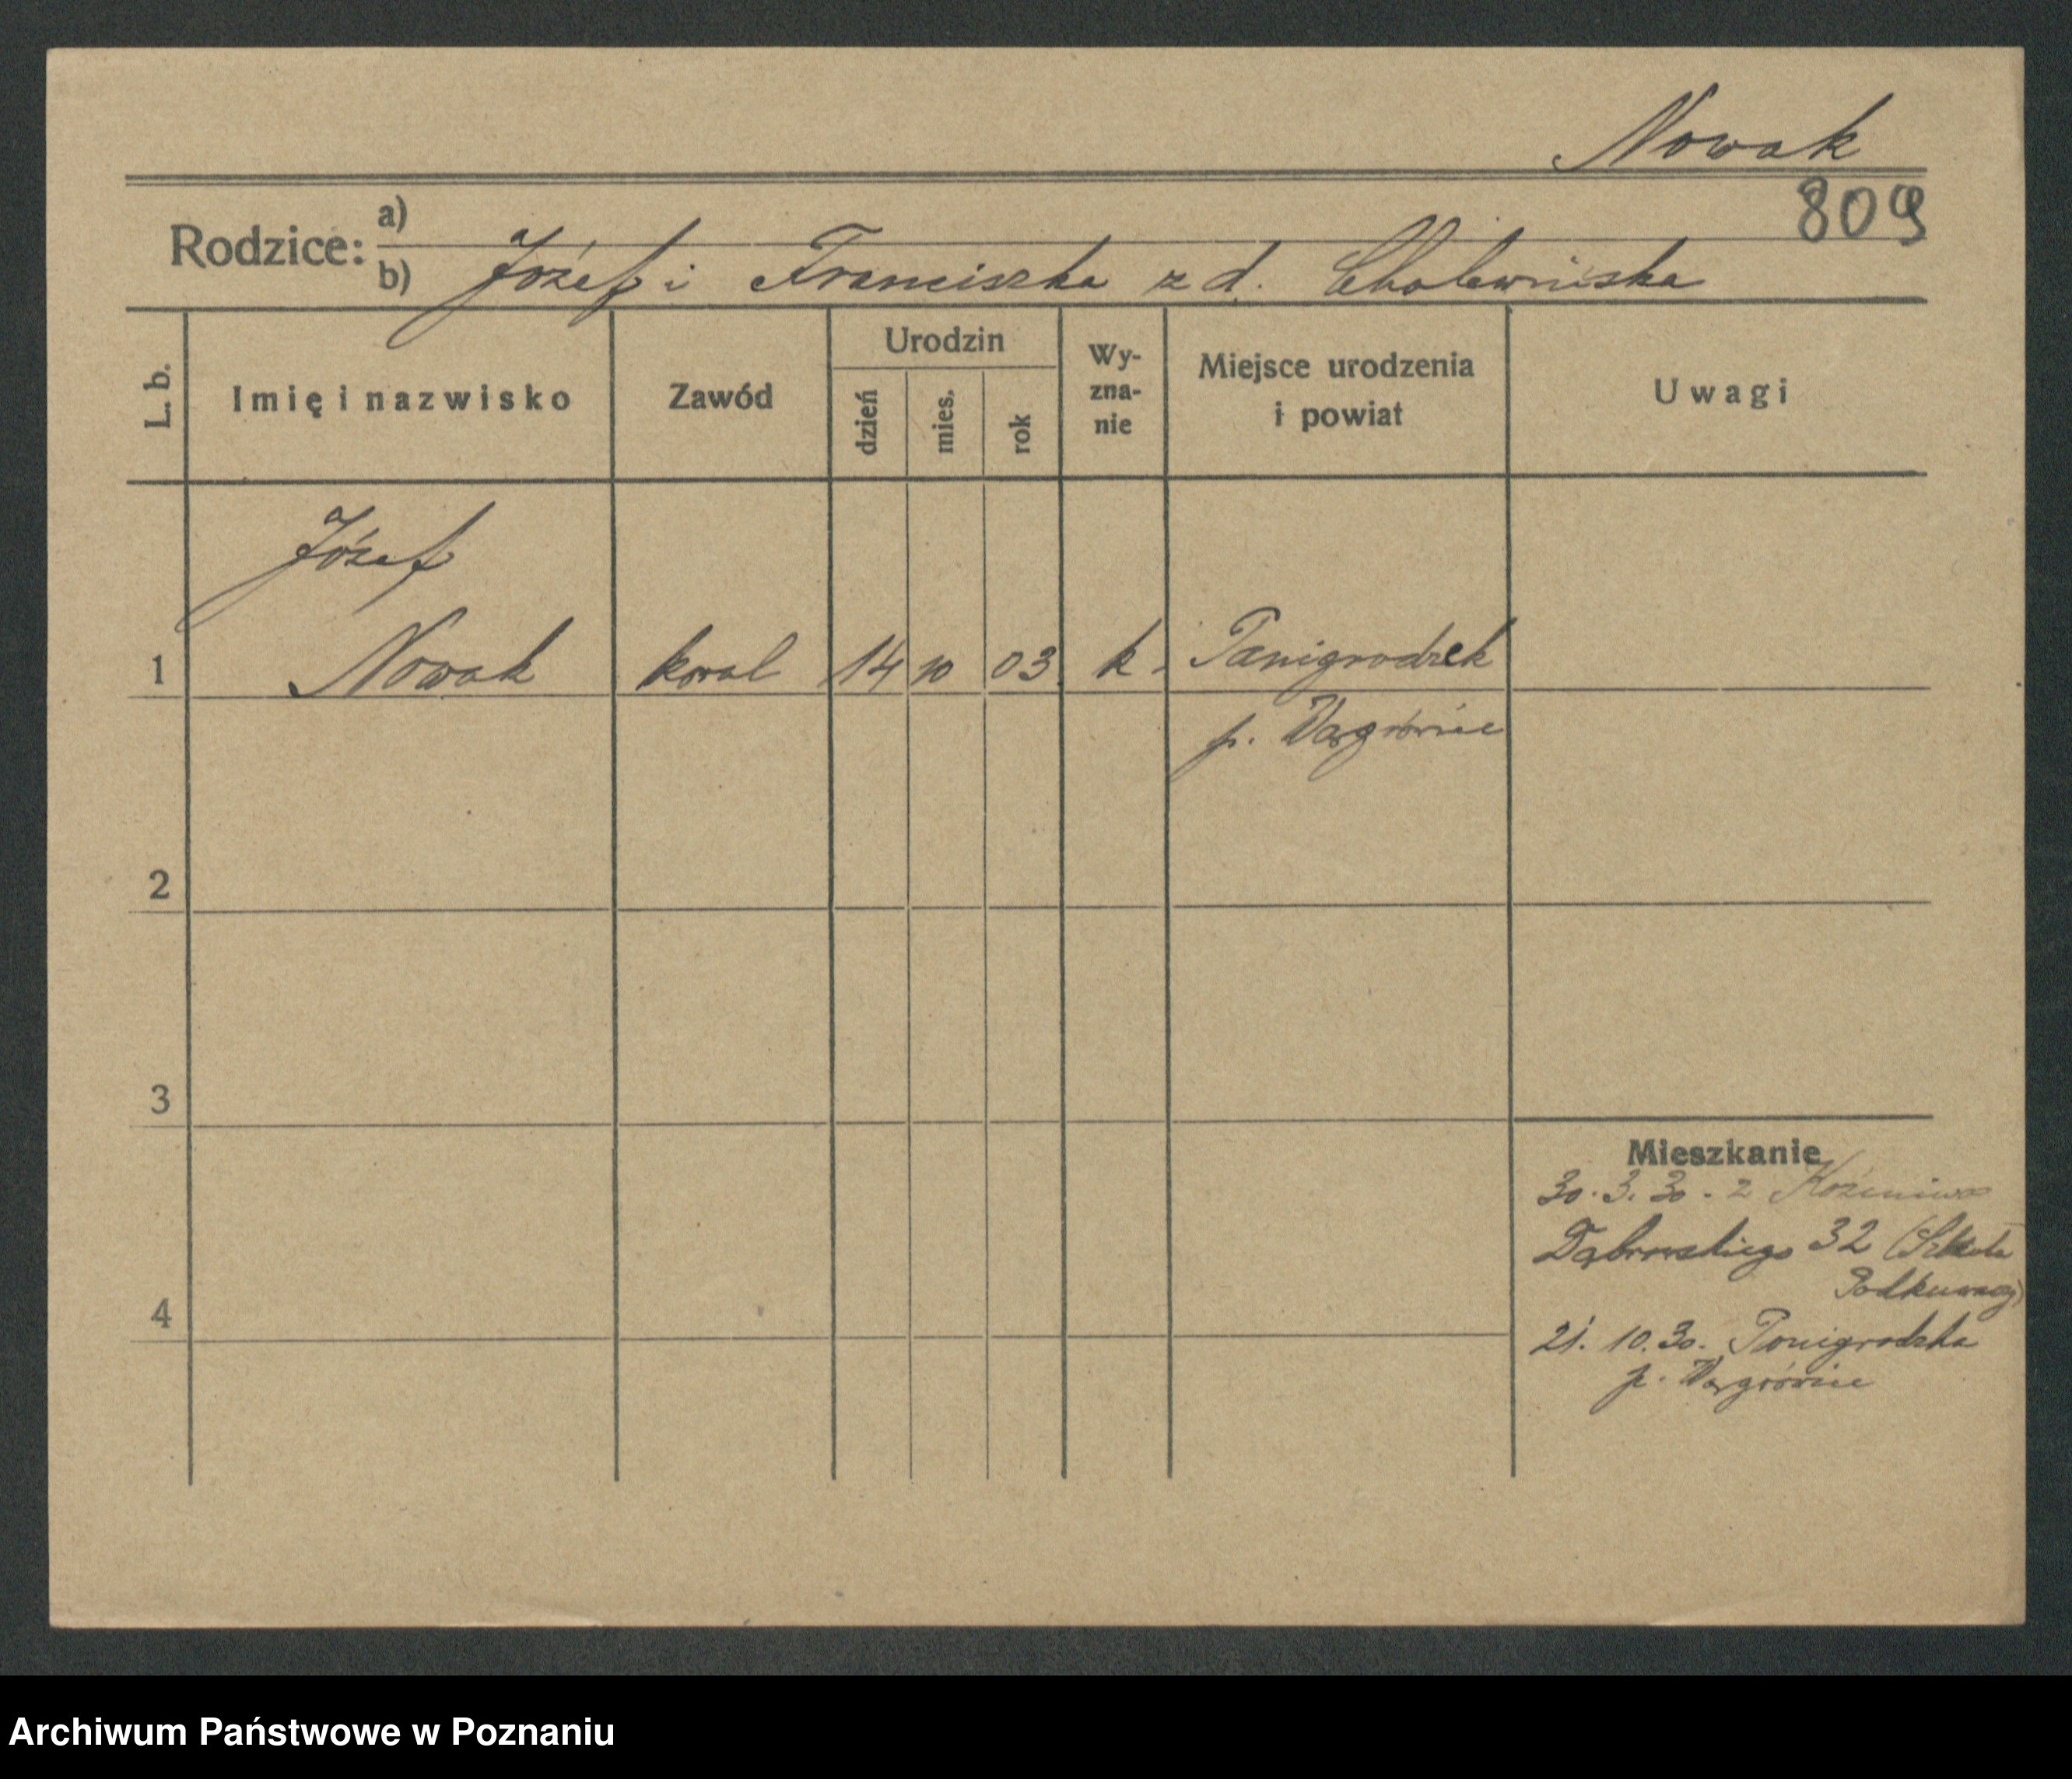 Nowak
809
Rodzice: a)
b) Józef i Franciszka z d. Cholewińska
L. b.
Imię i nazwisko
Zawód
Urodzin
dzień
mies.
rok
Wy-
zna-
nie
Miejsce urodzenia
i powiat
Uwagi
Józef
1 Nowak kowal 14 10 03 k. Panigrodzek
p. Wągrówiec
2
3
4
Mieszkanie
30. 3. 30. z
Dąbrowskiego 32 (Szkoła
Podkuwaczy)
21. 10. 30. Panigrodzka
p. Wągrówiec
Archiwum Państwowe w Poznaniu